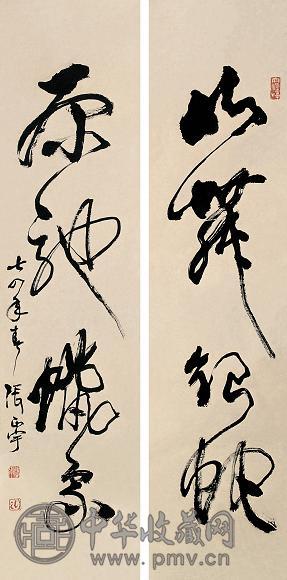 山舞银蛇
原驰蜡象
七四年春 张正宇
中华收藏网
www.pmv.cn